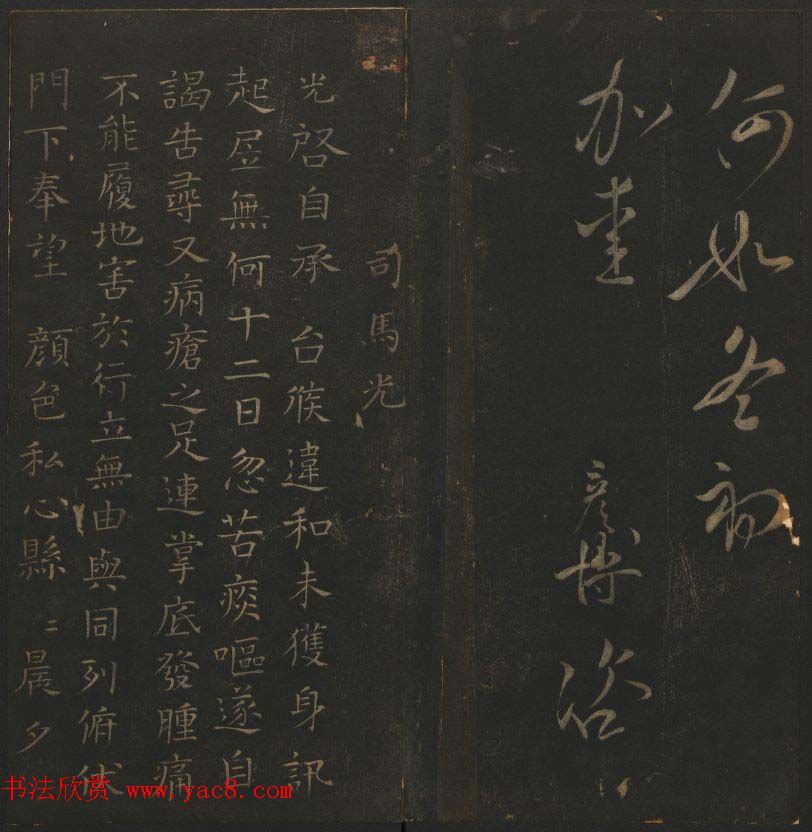 何如冬初
加愛
彥博 咨
司馬光
光啓自承 台候違和未獲身訊
起居無何十二日忽苦痰嘔遂自
謁告尋又病瘡之足連掌底發腫痛
不能履地害於行立無由與同列俯伏
門下奉望 顏色私心縣〻晨夕
书法欣赏 www.yac8.com